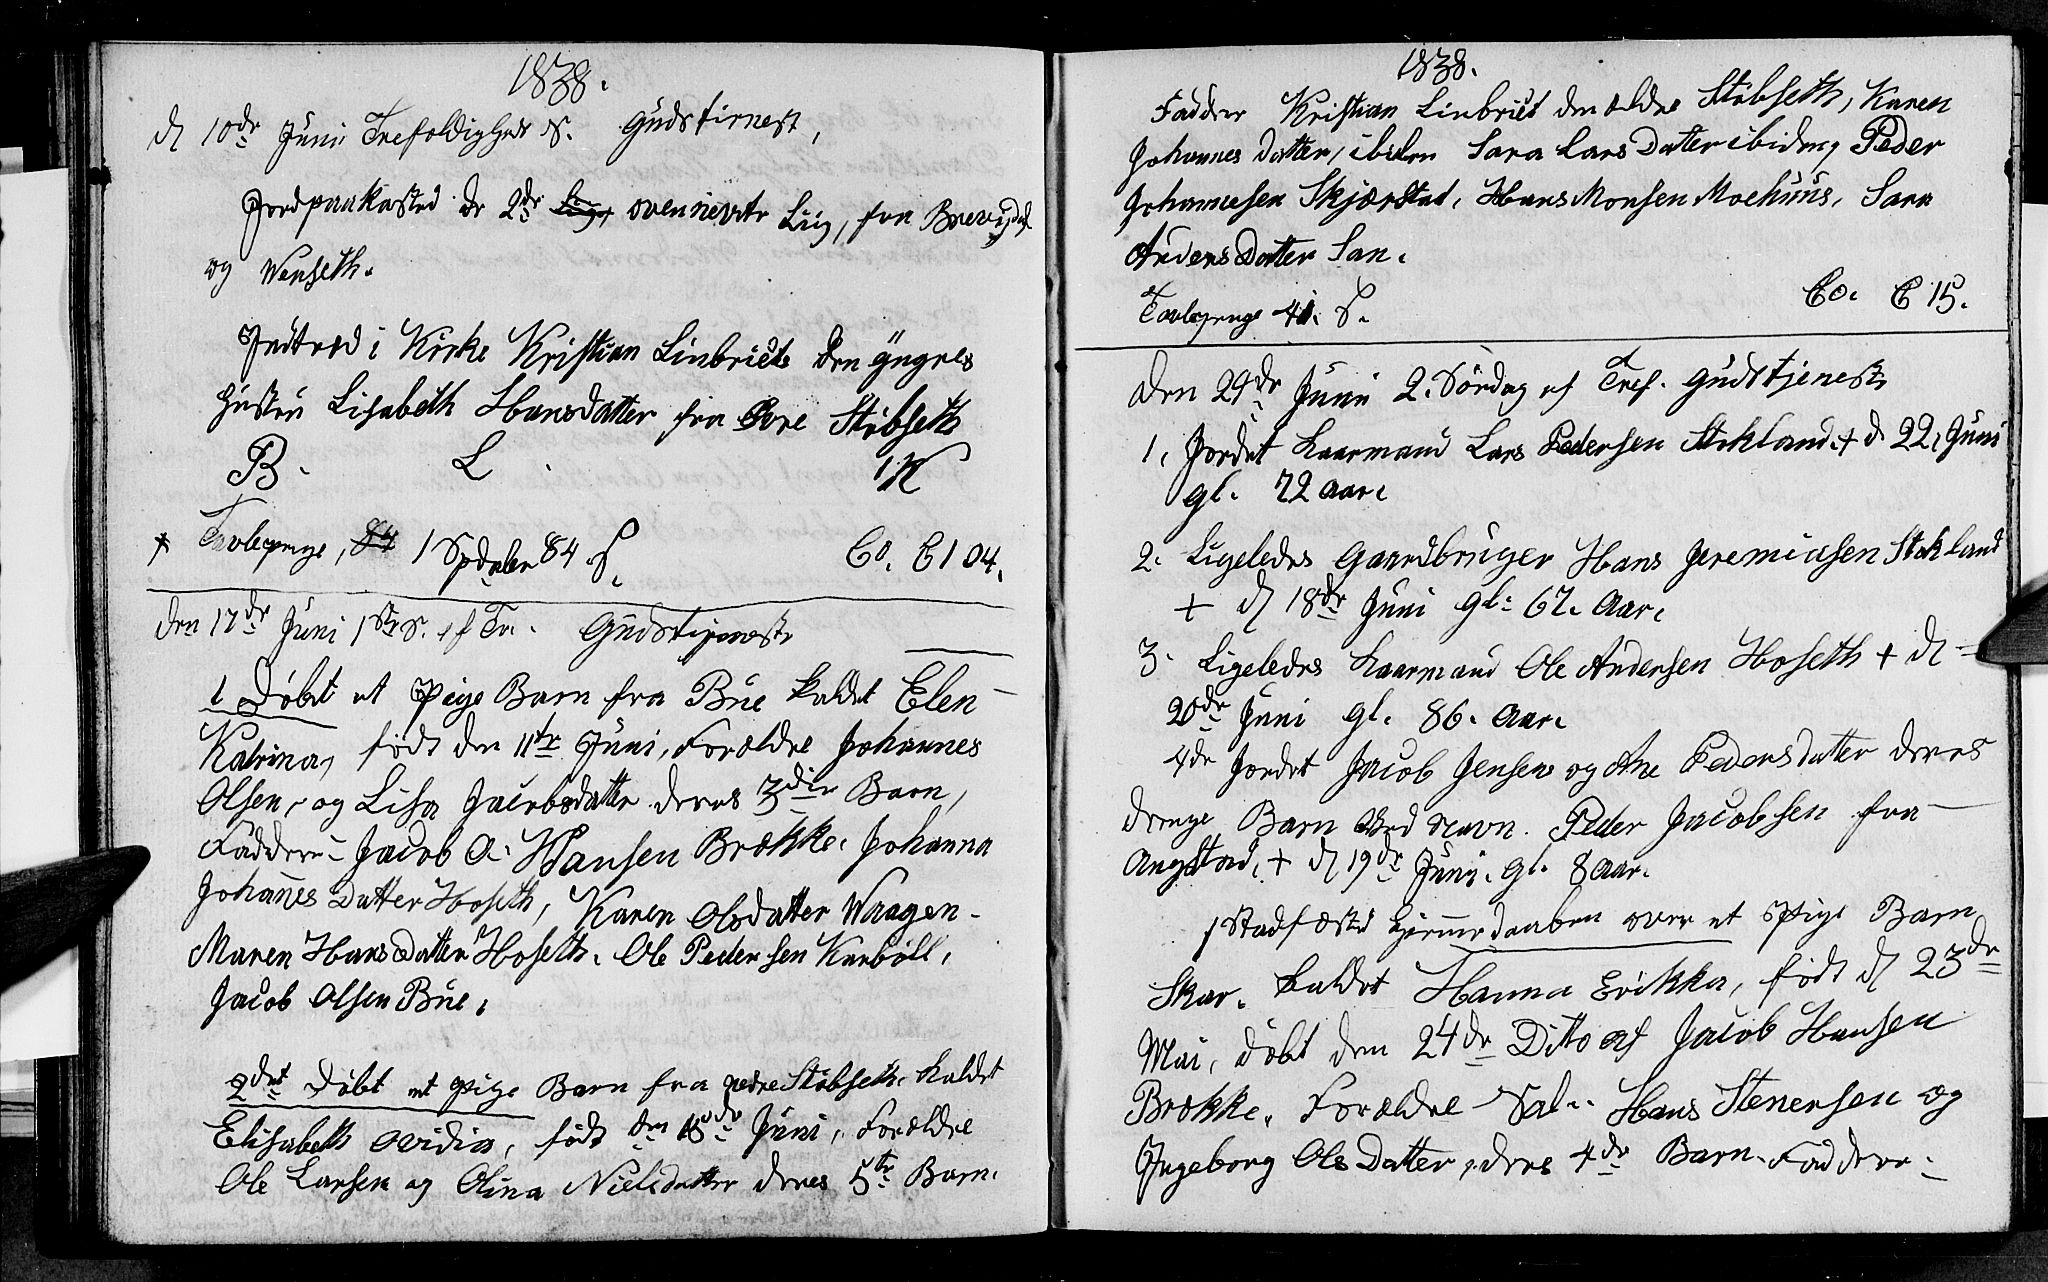 1838.
d 10de Juni Trefoldigheds S. Gudstienest,
Jordpaakasted de 2de ovennevnte Liig, fra
og Wenseth.
Indtræd i Kirke Kristian Linbriets den yngres
Hustru Lisabeth Hansdatter fra Øvre Stibseth
B. L. 1 K
Tavlepenge, 84 1 Spdaler 84 S. Co. C 104.
Den 17de Juni 1ste S. ef Tr. Gudstjeneste
1 Døbt et Pige Barn fra Bue kaldet Elen
Katrina, født den 11te Juni, Forældre Johannes
Olsen, og Lisa Jacobsdatter deres 3die Barn,
Faddere. Jacob A. Hansen Brække. Johanna
Johanes Datter Hoseth, Karen Olsdatter Waagen.
Maren Hans Datter Hoseth. Ole Pedersen Karböll.
Jacob Olsen Bue.
2det Døbt et Pige Barn fra nedre Stibseth. kaldet
Elisabeth Ovidia, født den Juni, Forældre
Ole Larsen og Olina Nielsdatter deres 5te Barn.
1838.
Fadder Kristian Linbriet den ældre Stibseth, Karen
Johannes Datter, ibiden Sara Lars Datter ibidem, Peder
Johannesen Skjærstad, Hans Monsen Moehuus, Sara
Anders Datter San.
Tavlepenge 41. S. Co. C 15.
Den 24de Juni 2. Söndag ef Tref. Gudstjeneste
1, Jordet Kaarmand Lars Pedersen Stokland. + d. 22, Juni
gl. 72 Aar.
2. Ligeledes Gaardbruger Hans Jeremiasen Stokland
+ d 18de Juni gl. 67. Aar.
3. Ligeledes Kaarmand Ole Andersen Hoseth + d =
20de Juni gl. 86. Aar.
4de Jordet Jacob Jensen og Ane Pedersdatter deres
drenge Barn Ved Navn. Peder Jacobsen fra
Angstad, + d 19de Juni. gl. 8 Aar.
1 Stadfæsted Hjemmedaaben over et Pige Barn
Skar. kaldet Hanna Erikka, født d 23de
Mai, døbt den 24de Ditto af Jacob Hansen
Brække, Forældre Sal. Hans Stenersen og
Ingeborg Ols Datter, deres 4de Barn. Faddere.